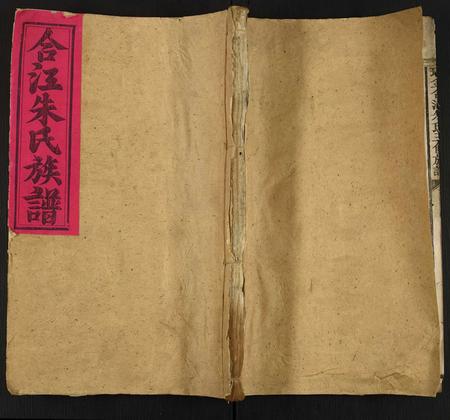 合江朱氏族譜